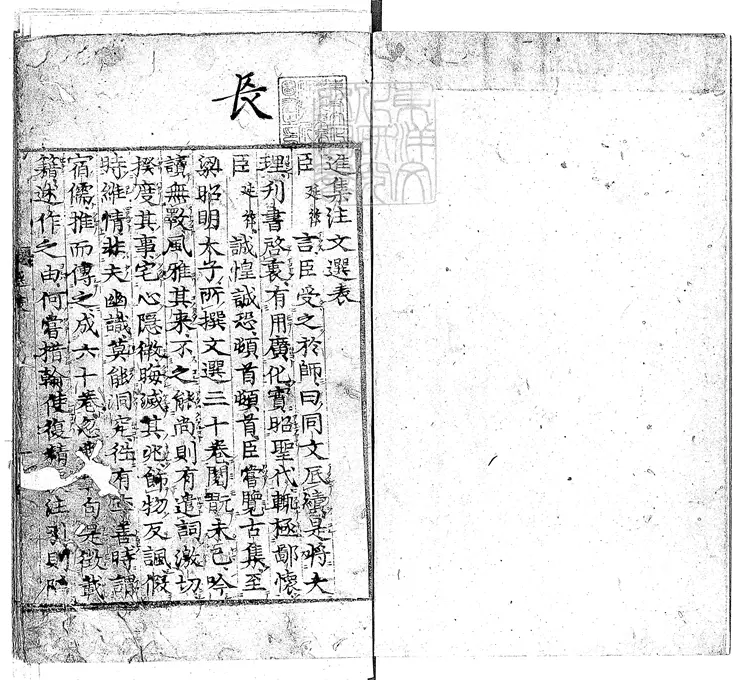 長
進集注文選表
臣延祚言臣受之於師曰同文底績是將大
理刊書啓衷有用廣化實昭聖代輒極鄙懷
臣延祚誠惶誠恐頓首頓首臣嘗覽古集至
梁昭明太子所撰文選三十卷閱翫未已吟
讀無斁風雅其來不之能尚則有遣詞激切
揆度其事宅心隱微晦滅其兆飾物反諷假
時維情非夫幽識莫能洞究往有李善時謂
宿儒推而傳之成六十卷忽發章句是徵載
籍述作之由何嘗措翰使復精 注引則